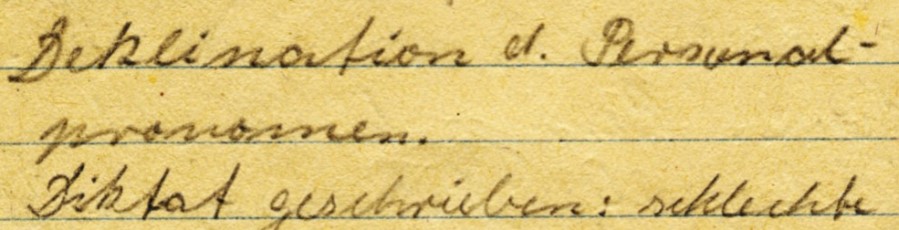 Deklination d. Personal-
pronomen.
Diktat geschrieben: schlechte